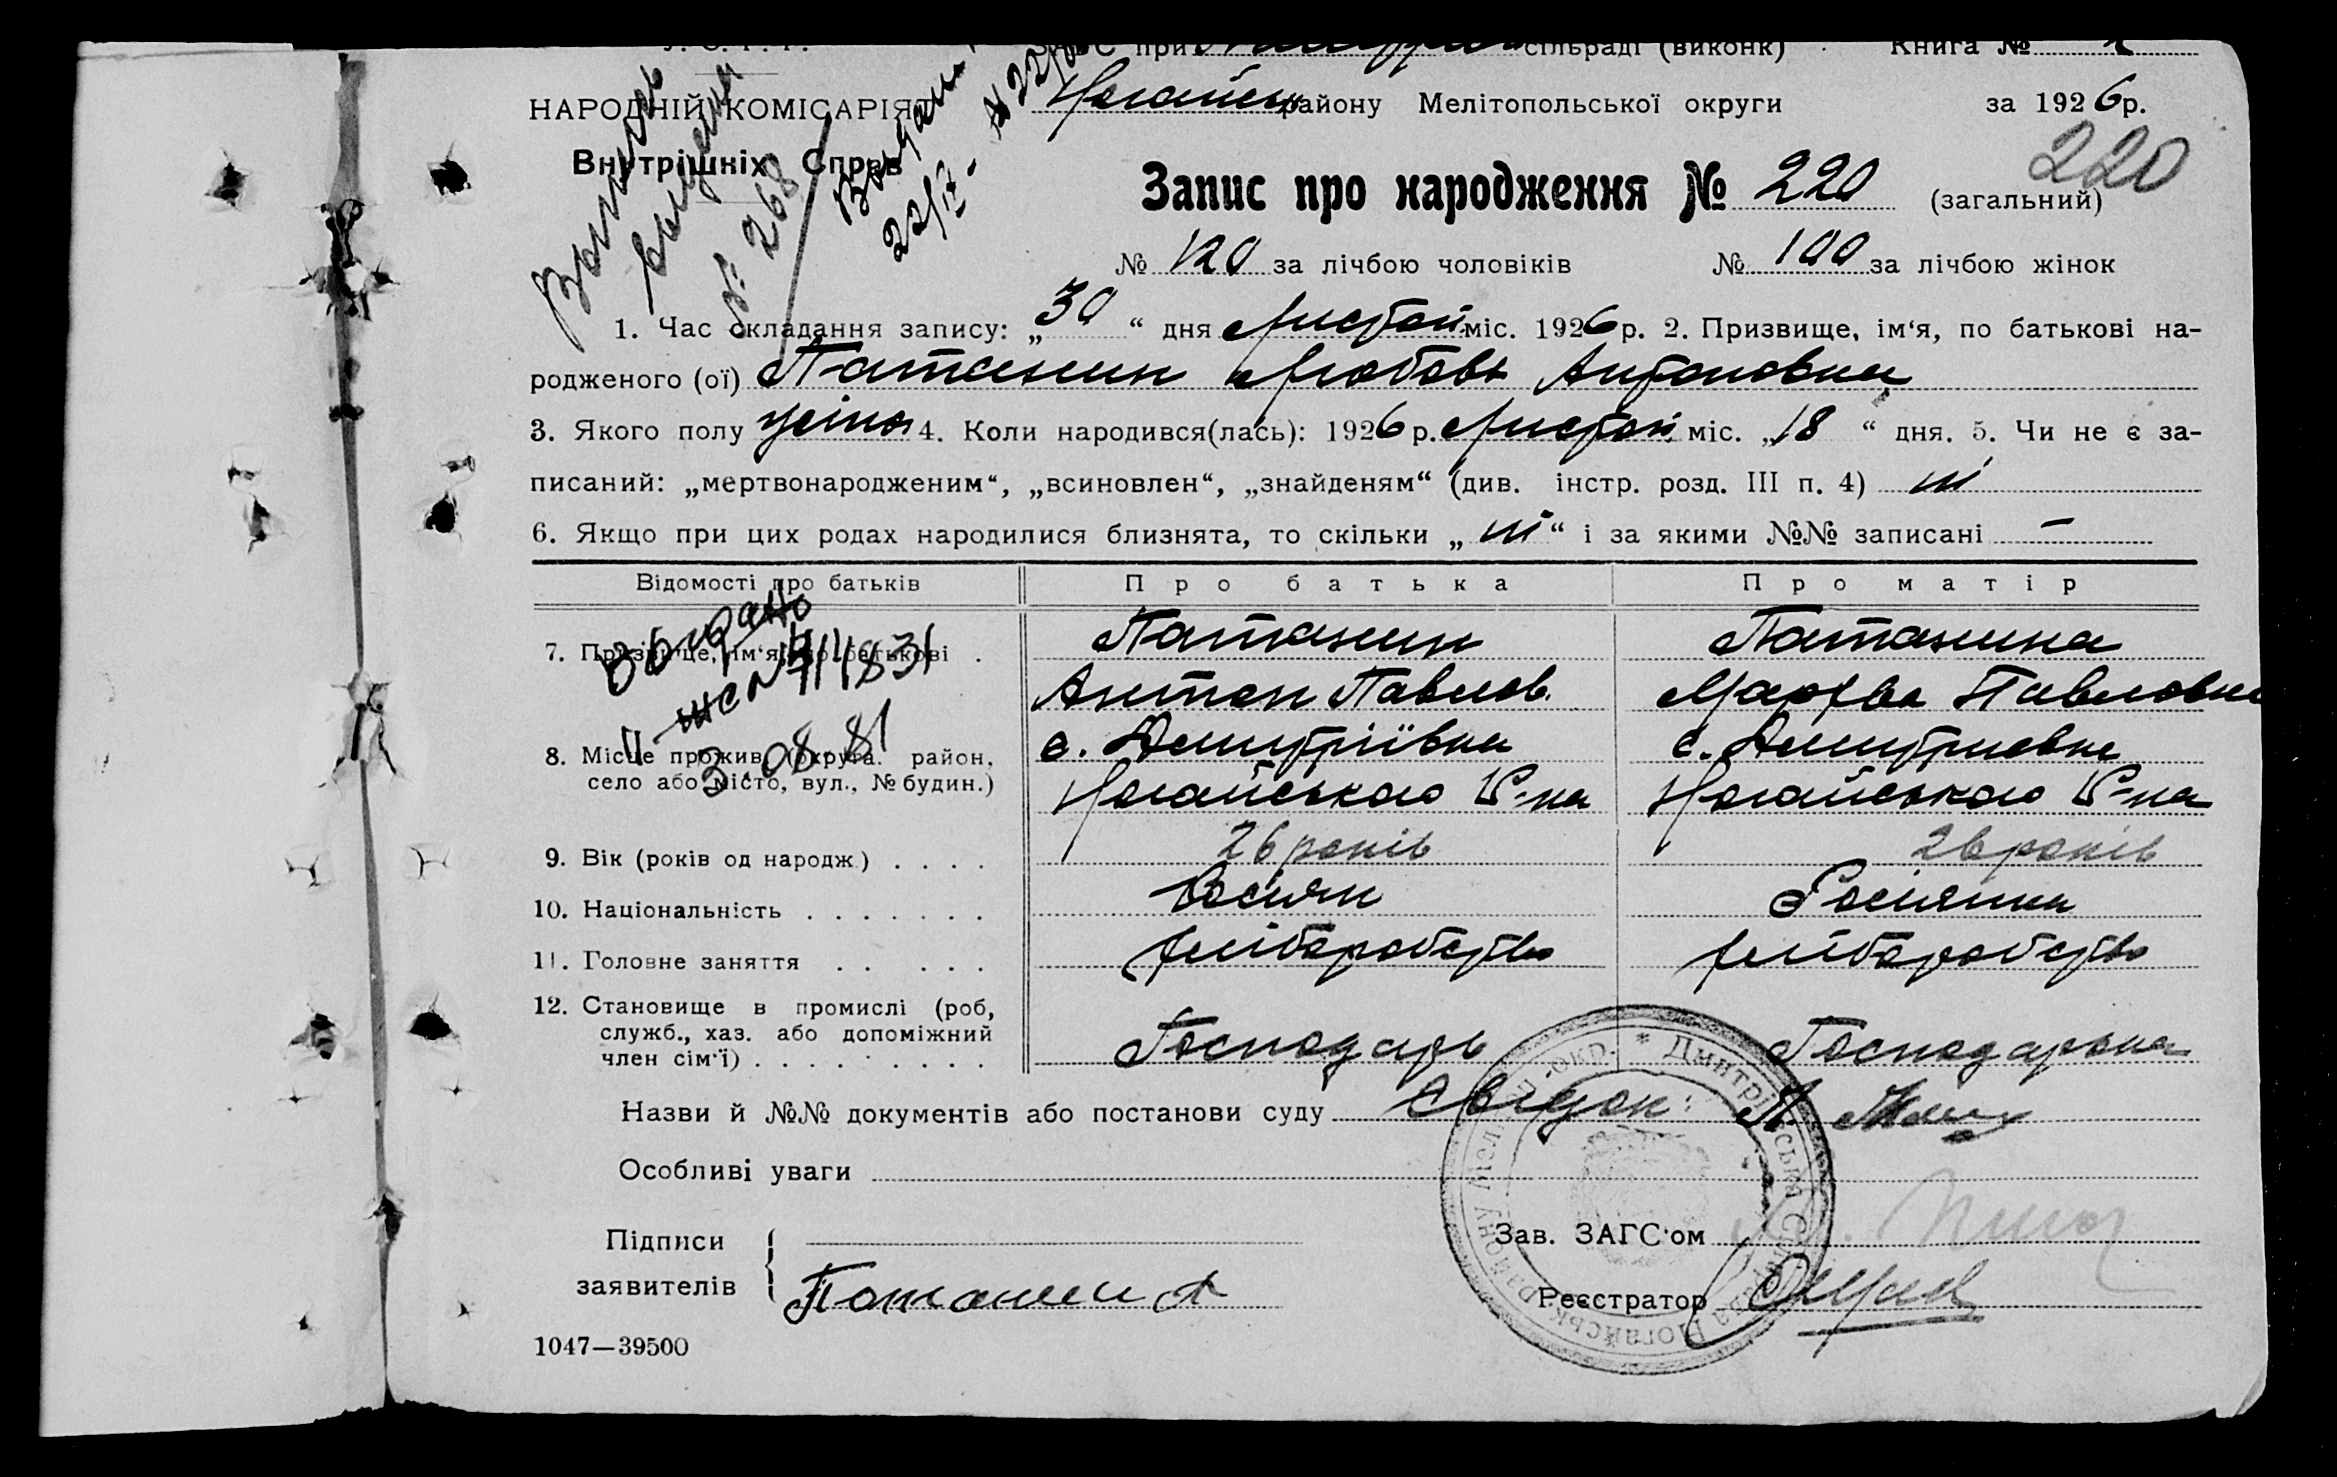 при сільраді (виконк) Книга №
НАРОДНІЙ КОМІСАРІЯТ
Внутрішніх Справ
району Мелітопольської округи за 1926 р.
220
Запис про народження № 220 (загальний)
№ 120 за лічбою чоловіків № 100 за лічбою жінок
№ 268
1. Час складання запису: „30“ дня Листоп. міс. 1926 р. 2. Призвище, ім‘я, по батькові на-
родженого (ої) Патанин Любовь Антоновна
3. Якого полу жіноч 4. Коли народився(лась): 1926 р. Листоп. міс. „18“ дня. 5. Чи не є за-
писаний: „мертвонародженим“, „всиновлен“, „знайденям“ (див. інстр. розд. III п. 4) ні
6. Якщо при цих родах народилися близнята, то скільки „ні“ і за якими №№ записані —
Відомості про батьків Про батька Про матір
7. Призвище, ім‘я, по-батькові . Патанин Патанина
Антон Павлов. Марфа Павловна
8. Місце прожив. (округа. район, с. Дмитріївка с. Дмитриевка
село або місто, вул., № будин.) Ногайського Р-на Ногайського Р-на
3 08 81
9. Вік (років од народж.) . . . . 26 років 26 років
10. Національність . . . . . . . Росіян Росіянка
11. Головне заняття . . . . . хліборобство хліборобство
12. Становище в промислі (роб,
служб., хаз. або допоміжний
член сім‘ї) . . . . . . . . Господарь Господарька
Назви й №№ документів або постанови суду Свідок:
Особливі уваги
Підписи
заявителів Патанин А
Зав. ЗАГС‘ом
Реєстратор
1047—39500